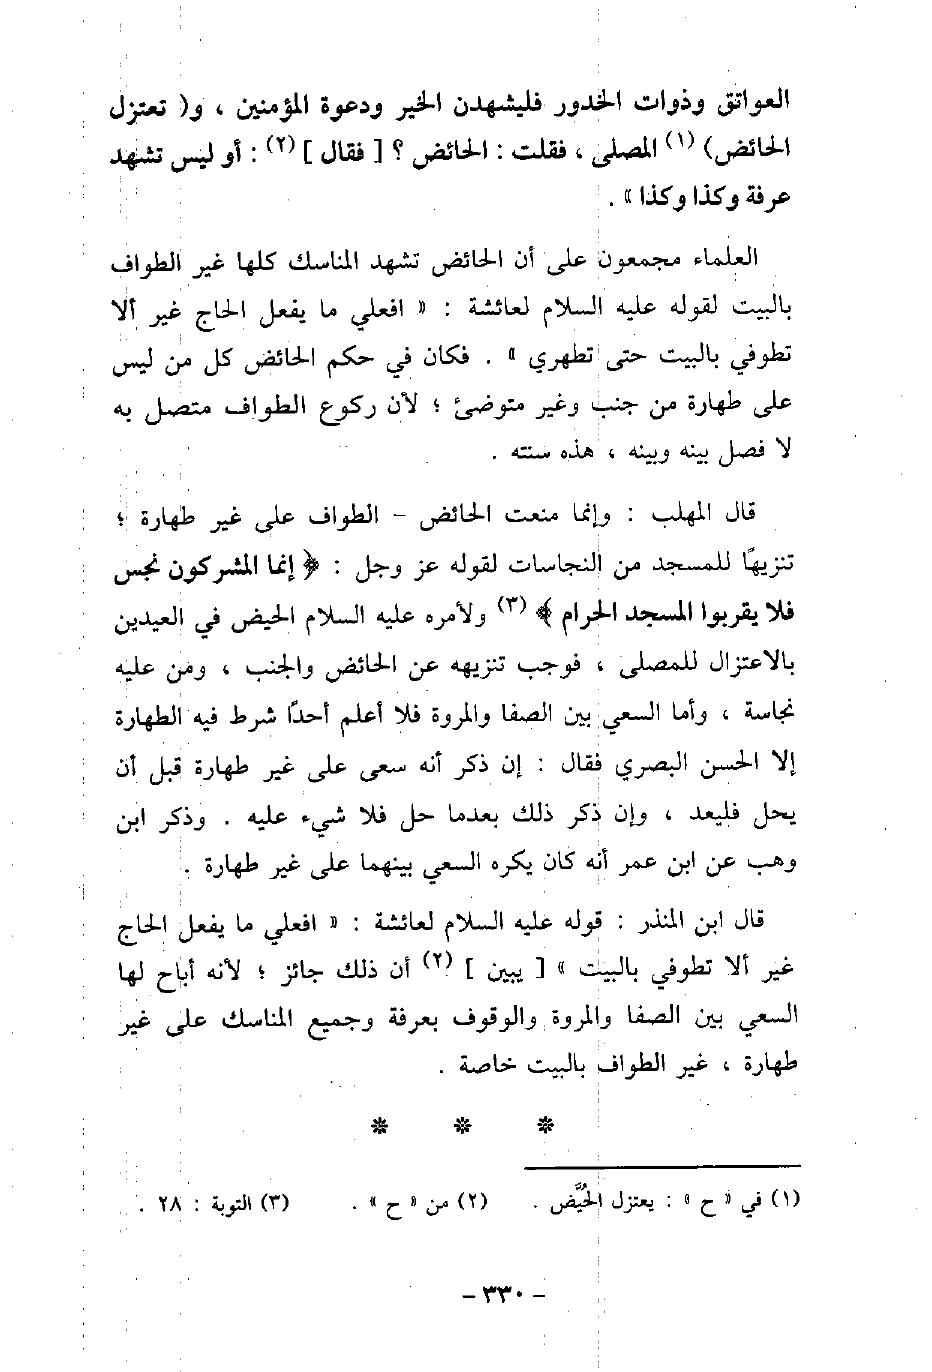 العواتق وذوات الخدور فليشهدن الخير ودعوة المؤمنين ، و( تعتزل
الحائض) (١) المصلى ، فقلت : الحائض ؟ [ فقال ] (٢) : أو ليس تشهد
عرفة وكذا وكذا » .
العلماء مجمعون على أن الحائض تشهد المناسك كلها غير الطواف
بالبيت لقوله عليه السلام لعائشة : « افعلي ما يفعل الحاج غير ألا
تطوفي بالبيت حتى تطهري » . فكان في حكم الحائض كل من ليس
على طهارة من جنب وغير متوضئ ؛ لأن ركوع الطواف متصل به
لا فصل بينه وبينه ، هذه سنته .
قال المهلب : وإنما منعت الحائض – الطواف على غير طهارة ؛
تنزيهًا للمسجد من النجاسات لقوله عز وجل : ﴿ إنما المشركون نجس
فلا يقربوا المسجد الحرام ﴾ (٣) ولأمره عليه السلام الحيض في العيدين
بالاعتزال للمصلى ، فوجب تنزيهه عن الحائض والجنب ، ومن عليه
نجاسة ، وأما السعي بين الصفا والمروة فلا أعلم أحدًا شرط فيه الطهارة
إلا الحسن البصري فقال : إن ذكر أنه سعى على غير طهارة قبل أن
يحل فليعد ، وإن ذكر ذلك بعدما حل فلا شيء عليه . وذكر ابن
وهب عن ابن عمر أنه كان يكره السعي بينهما على غير طهارة .
قال ابن المنذر : قوله عليه السلام لعائشة : « افعلي ما يفعل الحاج
غير ألا تطوفي بالبيت » [ يبين ] (٢) أن ذلك جائز ؛ لأنه أباح لها
السعي بين الصفا والمروة والوقوف بعرفة وجميع المناسك على غير
طهارة ، غير الطواف بالبيت خاصة .
* * *
(١) في « ح » : يعتزل الحُيَّض . (٢) من « ح » . (٣) التوبة : ٢٨ .
- ٣٣٠ -